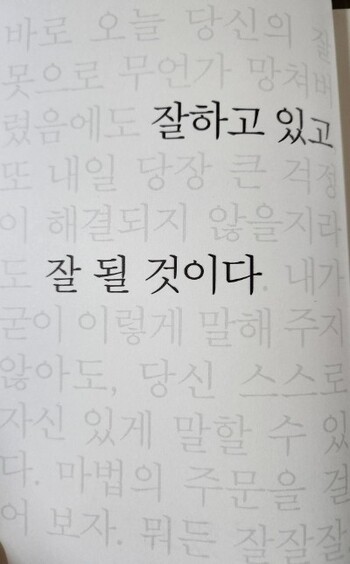 바로 오늘 당신의 잘
못으로 무언가 망쳐버
렸음에도 잘하고 있고
또 내일 당장 큰 걱정
이 해결되지 않을지라
도 잘 될 것이다. 내가
굳이 이렇게 말해 주지
않아도, 당신 스스로
자신 있게 말할 수 있
다. 마법의 주문을 걸
어 보자. 뭐든 잘잘잘